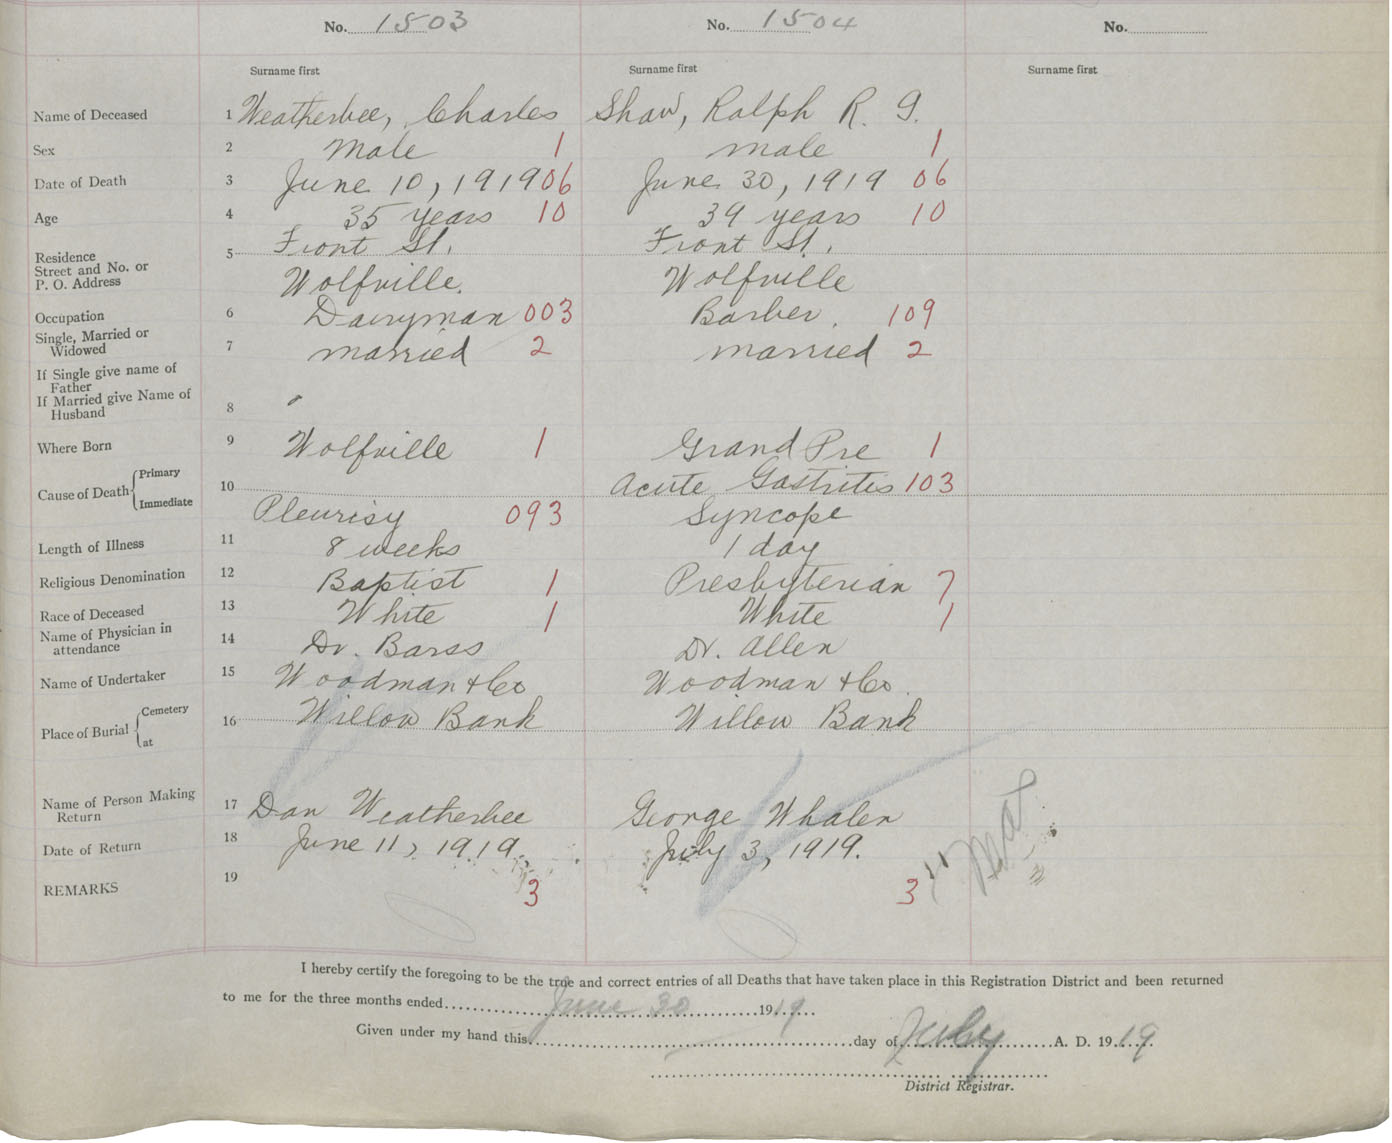 No. 1503 No. 1504 No.
Surname first Surname first Surname first
Name of Deceased 1 Weatherbee, Charles Shaw, Ralph R. G.
Sex 2 Male 1 male 1
Date of Death 3 June 10, 1919 06 June 30, 1919 06
Age 4 35 years 10 39 years 10
Residence 5 Front St. Front St.
Street and No. or
P. O. Address Wolfville. Wolfville
Occupation 6 Dairyman 003 Barber. 109
Single, Married or
Widowed 7 married 2 married 2
If Single give name of
Father
If Married give Name of
Husband 8
Where Born 9 Wolfville 1 Grand Pre 1
Cause of Death Primary 10 Acute Gastritis 103
Immediate Pleurisy 093 Syncope
Length of Illness 11 8 weeks 1 day
Religious Denomination 12 Baptist 1 Presbyterian 7
Race of Deceased 13 White 1 White 1
Name of Physician in
attendance 14 Dr. Barss Dr. Allen
Name of Undertaker 15 Woodman & Co Woodman & Co.
Place of Burial Cemetery 16 Willow Bank Willow Bank
at
Name of Person Making
Return 17 Dan Weatherbee George Whalen
Date of Return 18 June 11, 1919. July 3, 1919.
REMARKS 19 3 3
I hereby certify the foregoing to be the true and correct entries of all Deaths that have taken place in this Registration District and been returned
to me for the three months ended June 30 1919
Given under my hand this day of July A. D. 1919
District Registrar.